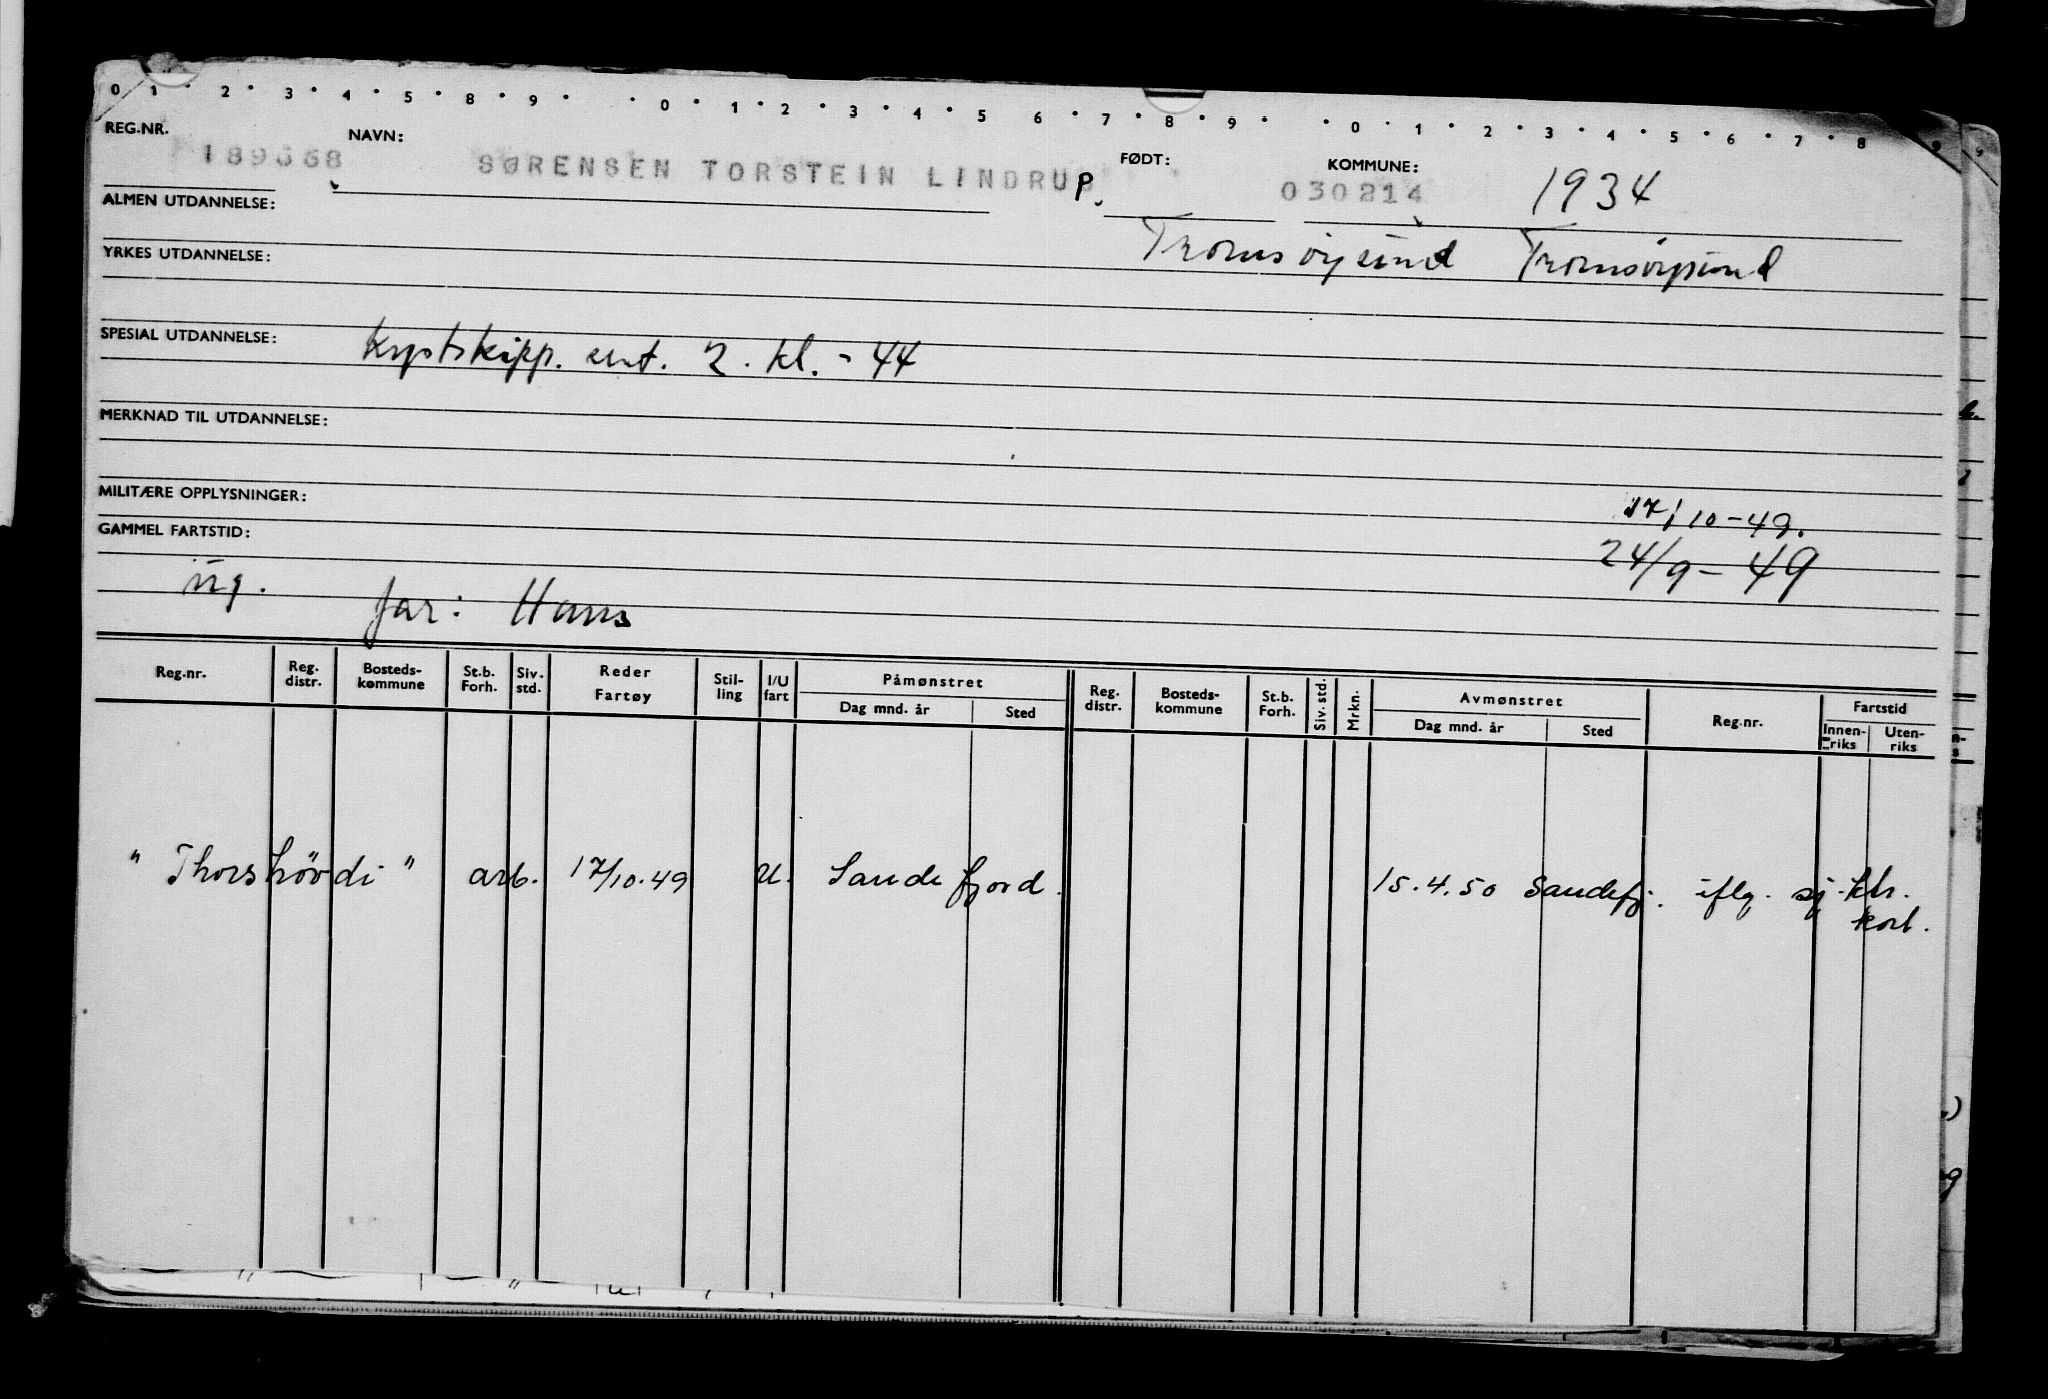 0 1 · 2 · 3 · 4 · 5 · 8 · 9 · · 0 · 1 · 2 · 3 · 4 · 5 6 · 7 · 8 · 9 · · 0 · 1 · 2 · 3 · 4 · 5 · 6 · 7 · 8 9
REG.NR. NAVN: FØDT: KOMMUNE:
SØRENSEN TORSTEIN LINDRUP. 030214 1934
ALMEN UTDANNELSE:
Tromsøysund Tromsøysund
YRKES UTDANNELSE:
SPESIAL UTDANNELSE: Kystskipp. sert. 2. kl. - 44
MERKNAD TIL UTDANNELSE:
MILITÆRE OPPLYSNINGER: 17/10-49.
GAMMEL FARTSTID: 24/9-49
ug. far: Hans
Reg.nr. Reg. distr. Bosteds-kommune St.b. Forh. Siv. std. Reder Fartøy Stil-ling I/U fart Påmønstret Dag mnd. år Sted Reg. distr. Bosteds-kommune St.b. Forh. Siv. std. Mrkn. Avmønstret Dag mnd. år Sted Reg.nr. Fartstid Innen-riks Uten-riks
" Thorshövdi " arb. 17/10.49 U. Sandefjord. 15.4.50 Sandefj. iflg. sj.ktr.
kort.